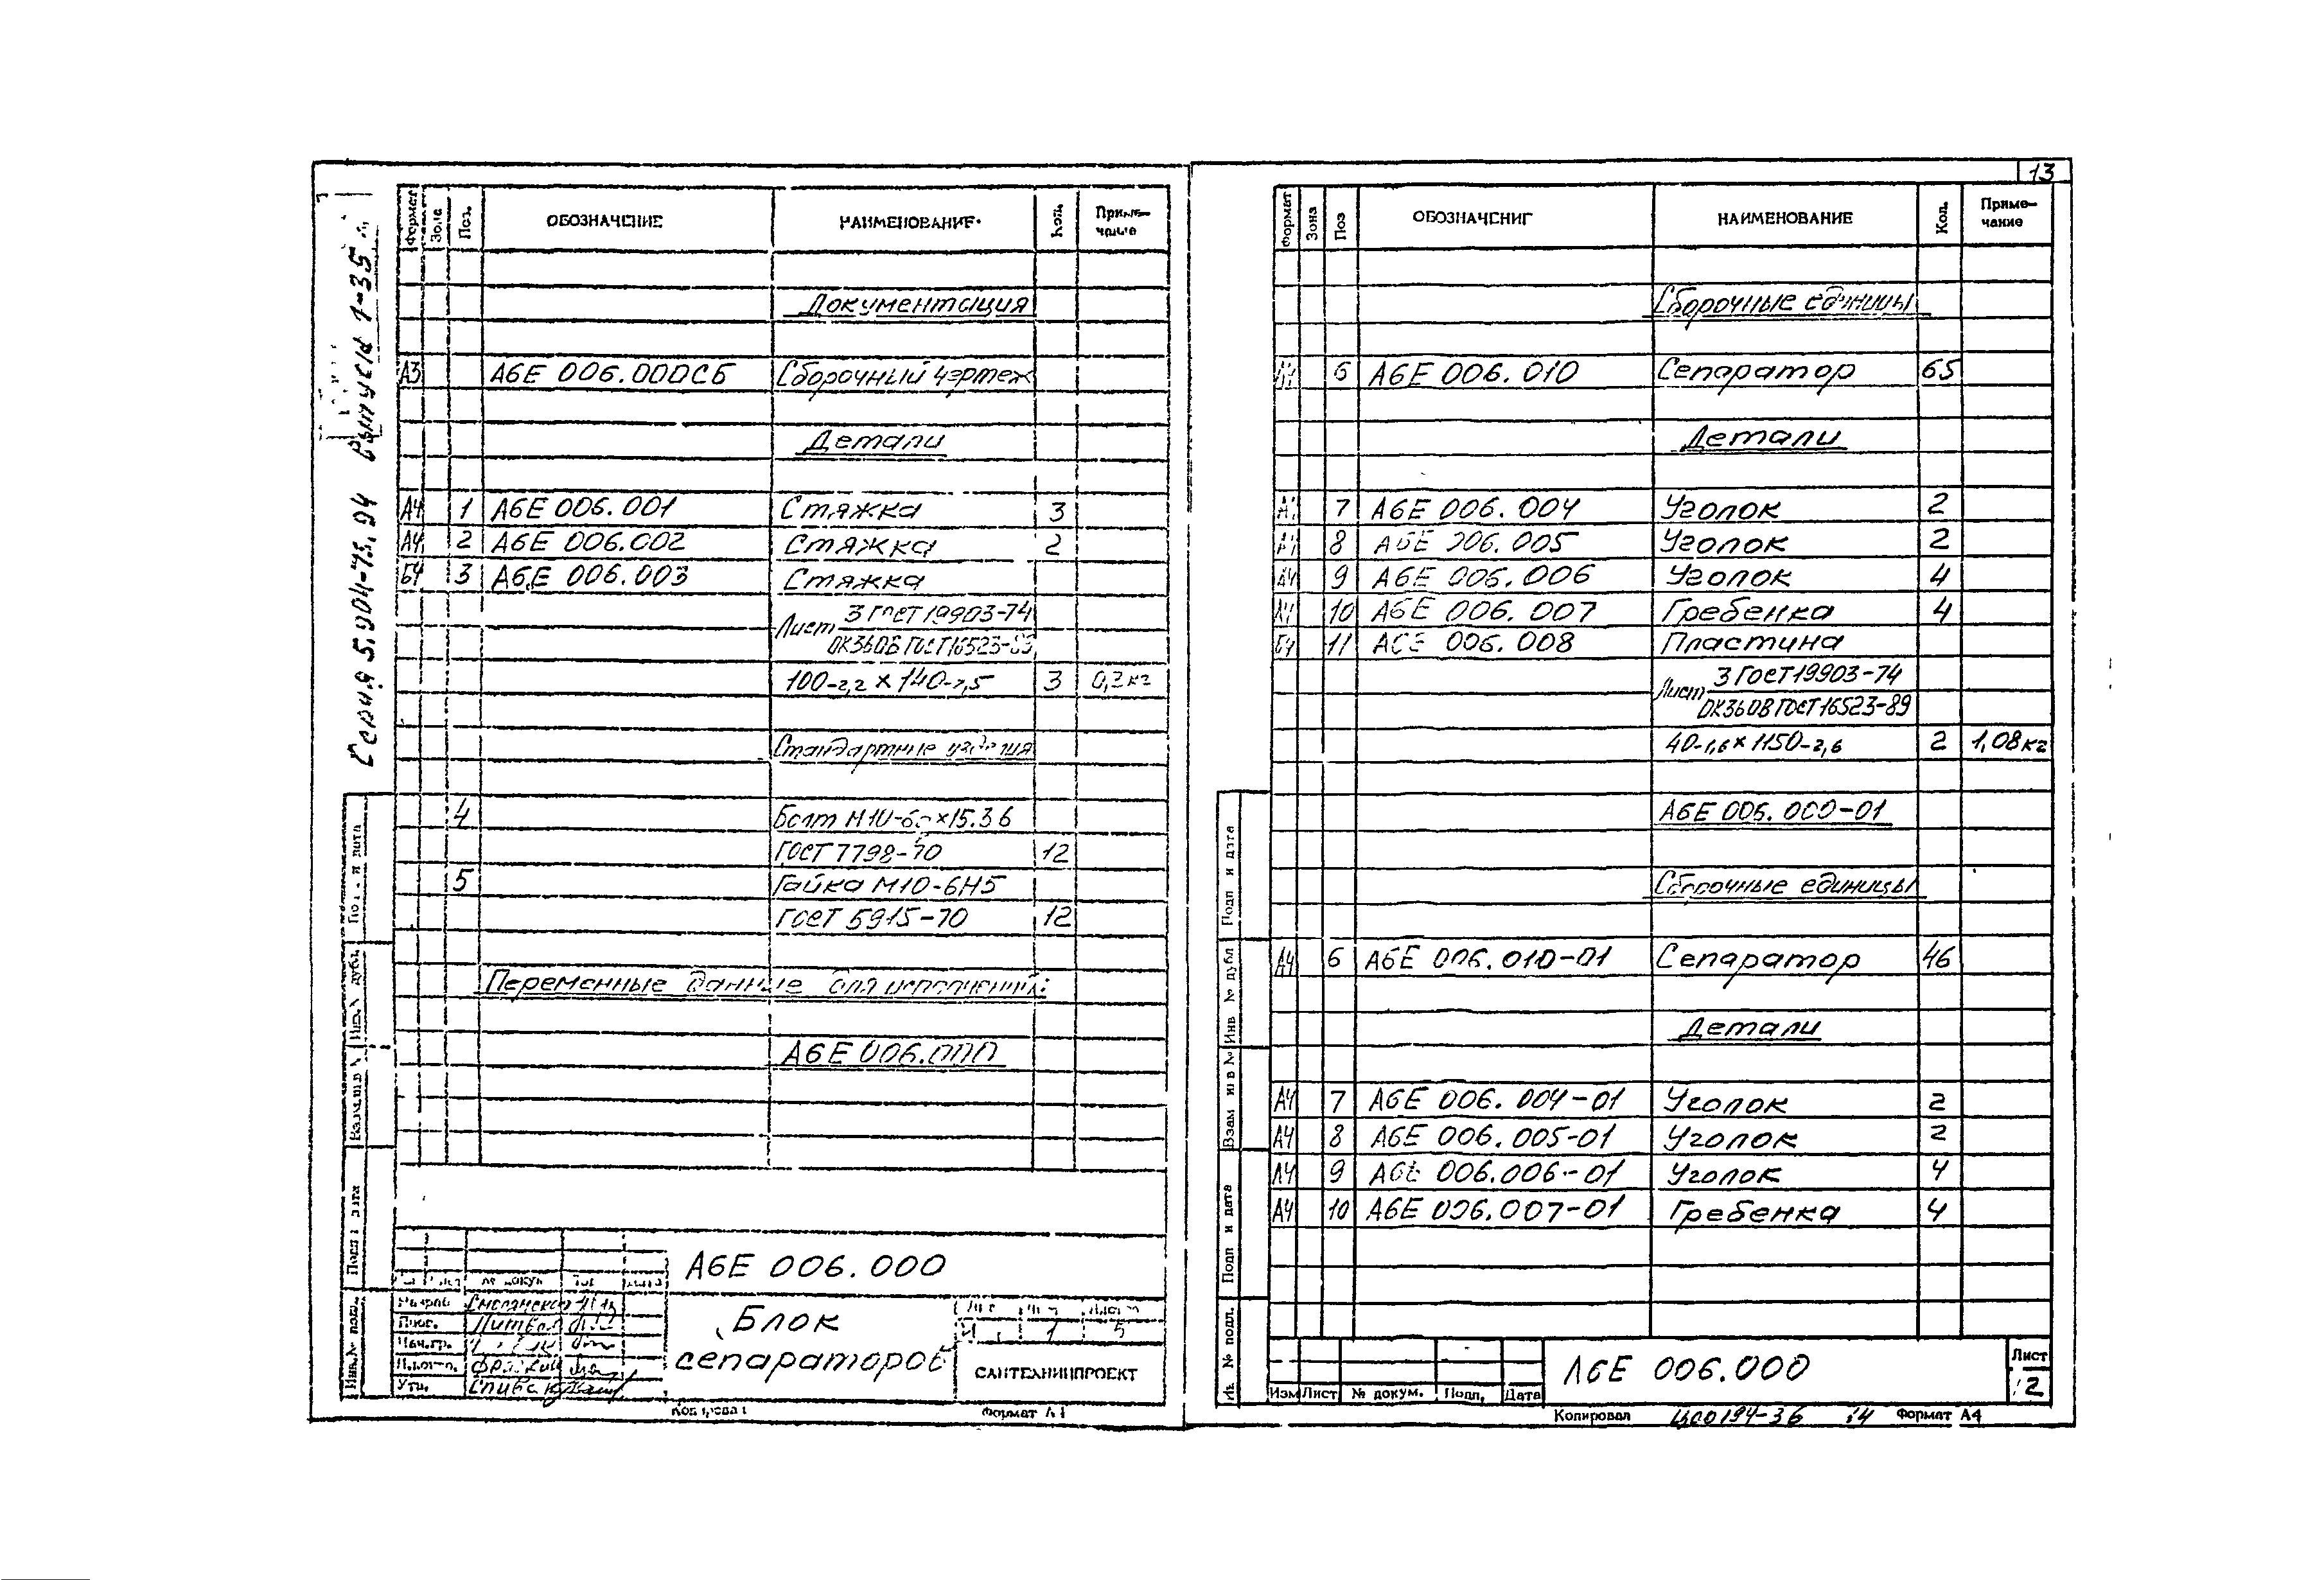 Серия 5.004-75.94 Выпуск 1-35
Формат Зона Поз. ОБОЗНАЧЕНИЕ НАИМЕНОВАНИЕ Кол. Приме-
чание
Документация
А3 А6Е 006.000СБ Сборочный чертеж
Детали
А4 1 А6Е 006.001 Стяжка 3
А4 2 А6Е 006.002 Стяжка 2
Б4 3 А6Е 006.003 Стяжка
3 ГОСТ 19903-74
Лист
ОК360В ГОСТ 16523-89
100-2,2 × 140-2,5 3
Стандартные изделия
4 Болт М10-6 ×15.36
ГОСТ 7798-70 12
5 Гайка М10-6Н5
ГОСТ 5915-70 12
Переменные данные для исполнений:
А6Е 006.000
Подп. и дата
Инв. № дубл.
Взам. инв. №
Подп. и дата
Инв. № подл.
Лист № докум. Дата
А6Е 006.000
Разраб.
Пров.
Нач.гр.
Н.контр.
Утв.
Блок
сепараторов
Лит. Лист Листов
И 1 5
САНТЕХНИИПРОЕКТ
Копировал Формат А4
13
Формат Зона Поз ОБОЗНАЧЕНИЕ НАИМЕНОВАНИЕ Кол. Приме-
чание
Сборочные единицы
А4 6 А6Е 006.010 Сепаратор 65
Детали
А4 7 А6Е 006.004 Уголок 2
А4 8 А6Е 006.005 Уголок 2
А4 9 А6Е 006.006 Уголок 4
А4 10 А6Е 006.007 Гребенка 4
Б4 11 А6Е 006.008 Пластина
3 ГОСТ 19903-74
Лист
ОК360В ГОСТ 16523-89
40-1,6 × 1150-2,6 2 1,08кг
А6Е 006.000-01
Сборочные единицы
А4 6 А6Е 006.010-01 Сепаратор 46
Детали
А4 7 А6Е 006.004-01 Уголок 2
А4 8 А6Е 006.005-01 Уголок 2
А4 9 А6Е 006.006-01 Уголок 4
А4 10 А6Е 006.007-01 Гребенка 4
Подп и дата
Инв № дубл
Взам инв №
Подп и дата
Ин. № подл.
Изм Лист № докум. Подп. Дата
А6Е 006.000
Лист
2
Копировал ЦС0194-36 14 Формат А4